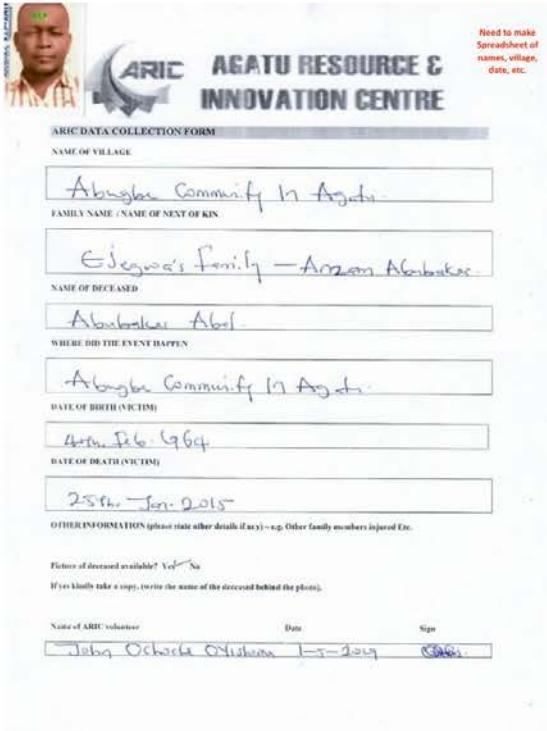 Need to make
Spreadsheet of
names, village,
date, etc.
ARIC
AGATU RESOURCE &
INNOVATION CENTRE
ARIC DATA COLLECTION FORM
NAME OF VILLAGE
Abugbe Community In Agatu.
FAMILY NAME / NAME OF NEXT OF KIN
Ejegwa's Family — Abubakar
NAME OF DECEASED
Abubakar Abel
WHERE DID THE EVENT HAPPEN
Abugbe Community In Agatu.
DATE OF BIRTH (VICTIM)
4th. Feb. 1964
DATE OF DEATH (VICTIM)
25th. Jan. 2015
OTHER INFORMATION (please state other details if any) – e.g. Other family members injured Etc.
Picture of deceased available? Yes No
If yes kindly take a copy. (write the name of the deceased behind the photo).
Name of ARIC volunteer Date Sign
John Ochoche 1-5-2019